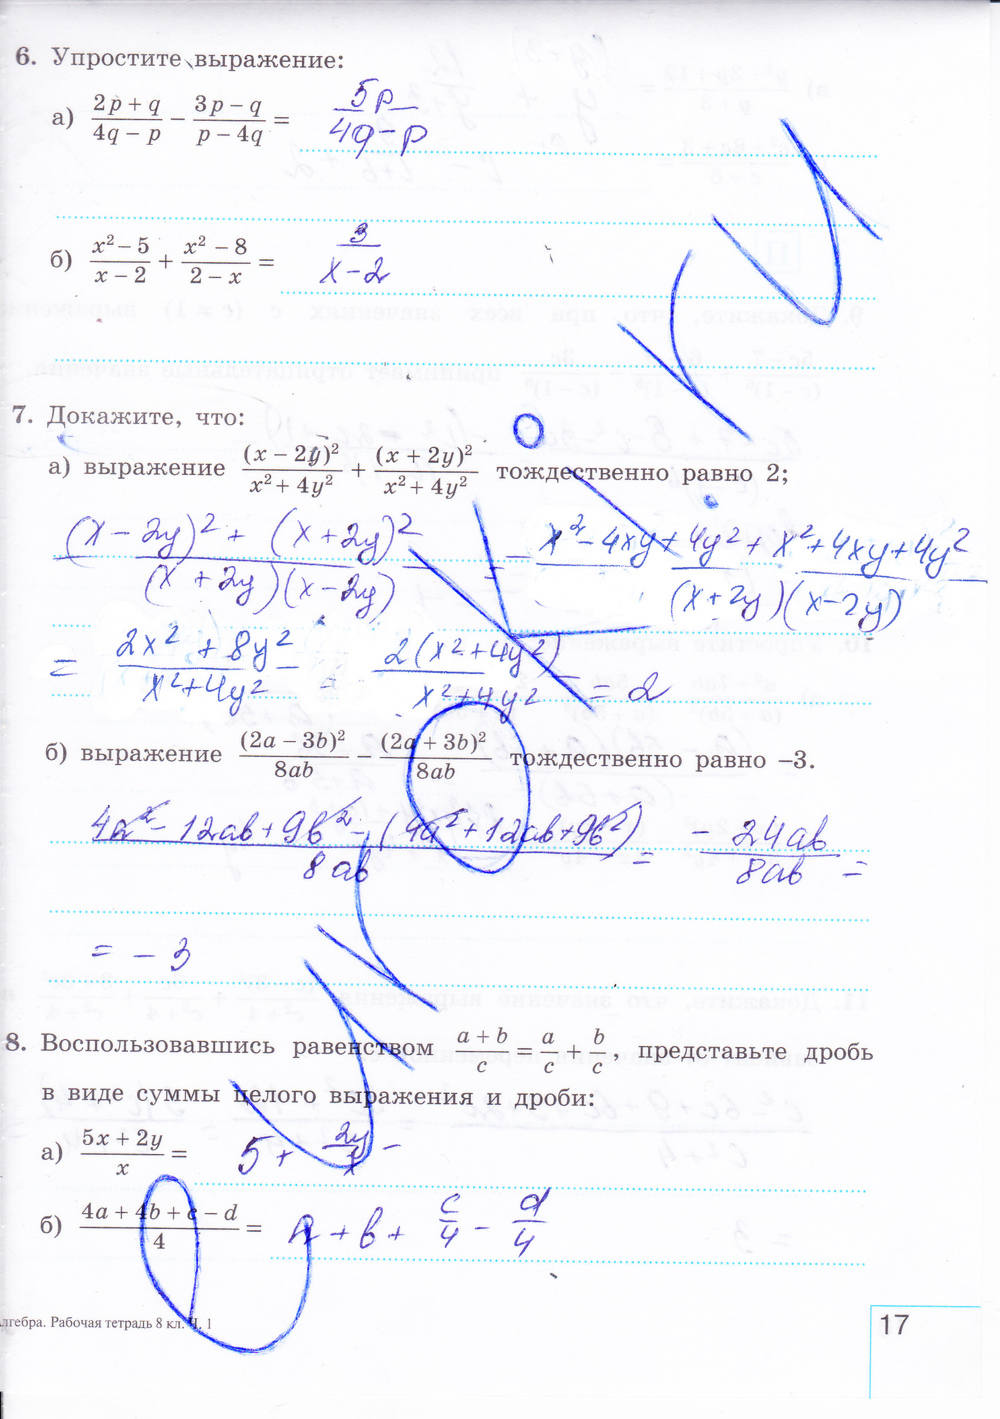 6. Упростите выражение:
а) (2p + q)/(4q − p) − (3p − q)/(p − 4q) = 5p/(4q − p)
б) (x² − 5)/(x − 2) + (x² − 8)/(2 − x) = 3/(x − 2)
7. Докажите, что:
а) выражение (x − 2y)²/(x² + 4y²) + (x + 2y)²/(x² + 4y²) тождественно равно 2;
((x − 2y)² + (x + 2y)²)/((x + 2y)(x − 2y)) = (x² − 4xy + 4y² + x² + 4xy + 4y²)/((x + 2y)(x − 2y))
= (2x² + 8y²)/(x² + 4y²) = 2(x² + 4y²)/(x² + 4y²) = 2
б) выражение (2a − 3b)²/8ab − (2a + 3b)²/8ab тождественно равно −3.
(4a² − 12ab + 9b² − (4a² + 12ab + 9b²))/8ab = −24ab/8ab =
= − 3
8. Воспользовавшись равенством (a + b)/c = a/c + b/c, представьте дробь
в виде суммы целого выражения и дроби:
а) (5x + 2y)/x = 5 + 2y/x
б) (4a + 4b + c − d)/4 = a + b + c/4 − d/4
лгебра. Рабочая тетрадь 8 кл. Ч. 1
17